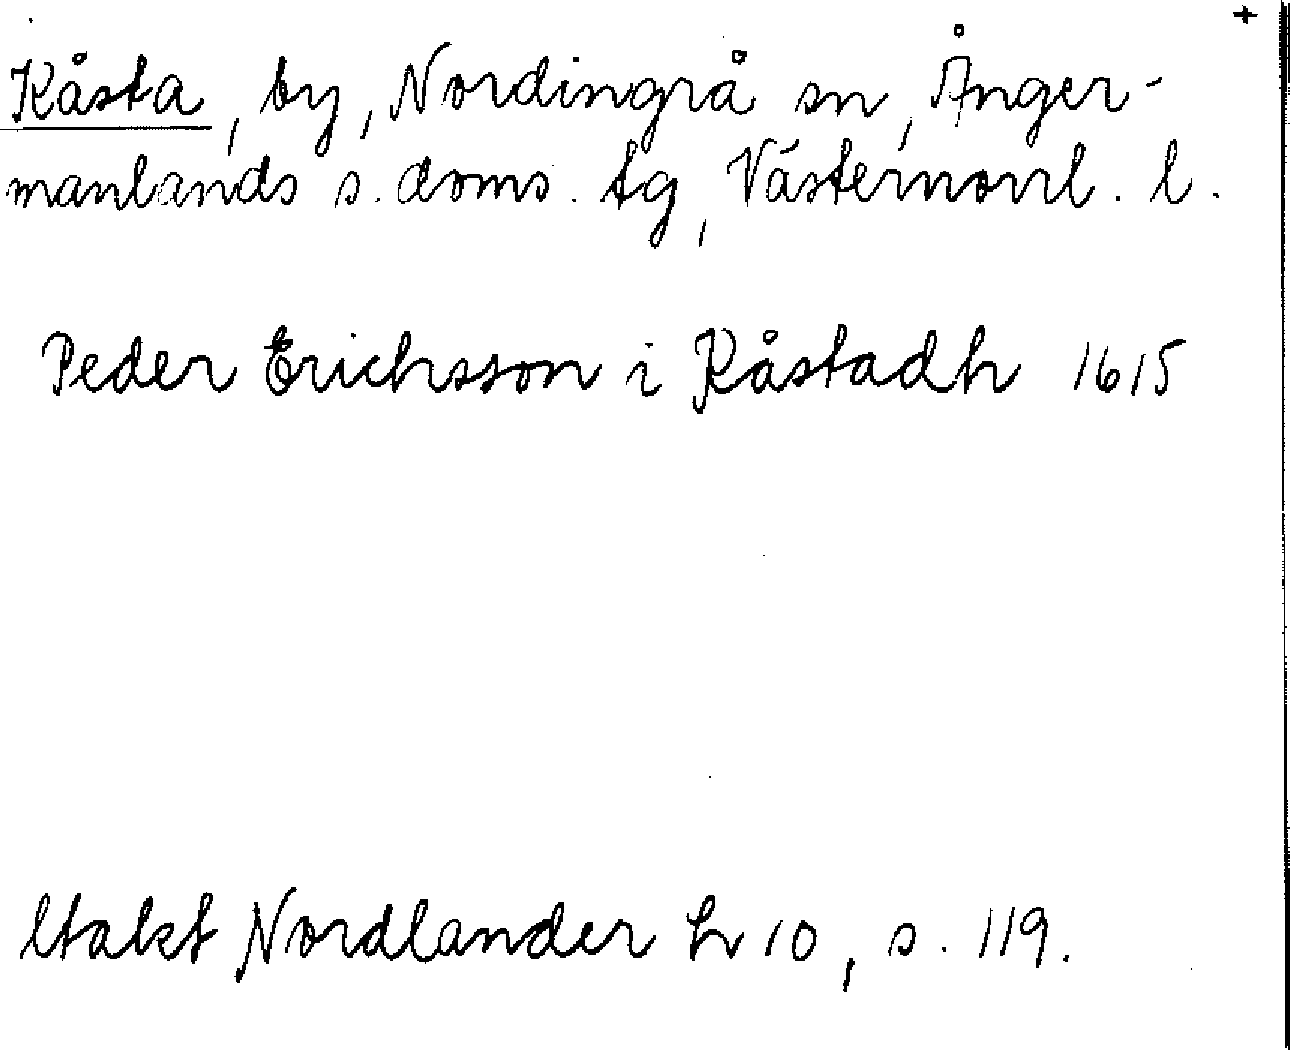 +
Kåsta, by, Nordingrå sn, Ånger-
manlands s. doms. tg, Västernorrl. l.
Peder Erichsson i Kåstadh 1615
Nordlander h 10, s. 119.